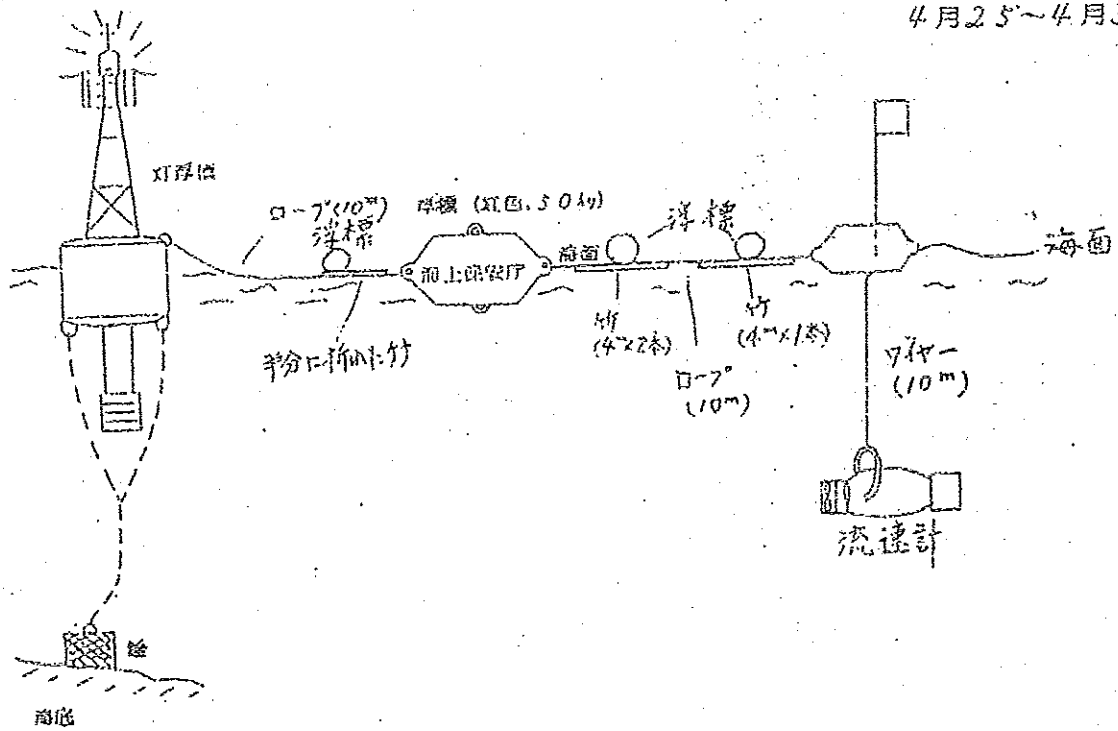 4月25~4月3
灯浮標
ロープ(10m)
浮標
浮標 (紅色、50kg)
海上保安庁
海面
浮標
海面
半分に折れた竹
竹
(4m×2本)
ロープ
(10m)
竹
(4m×1本)
ワイヤー
(10m)
流速計
海底